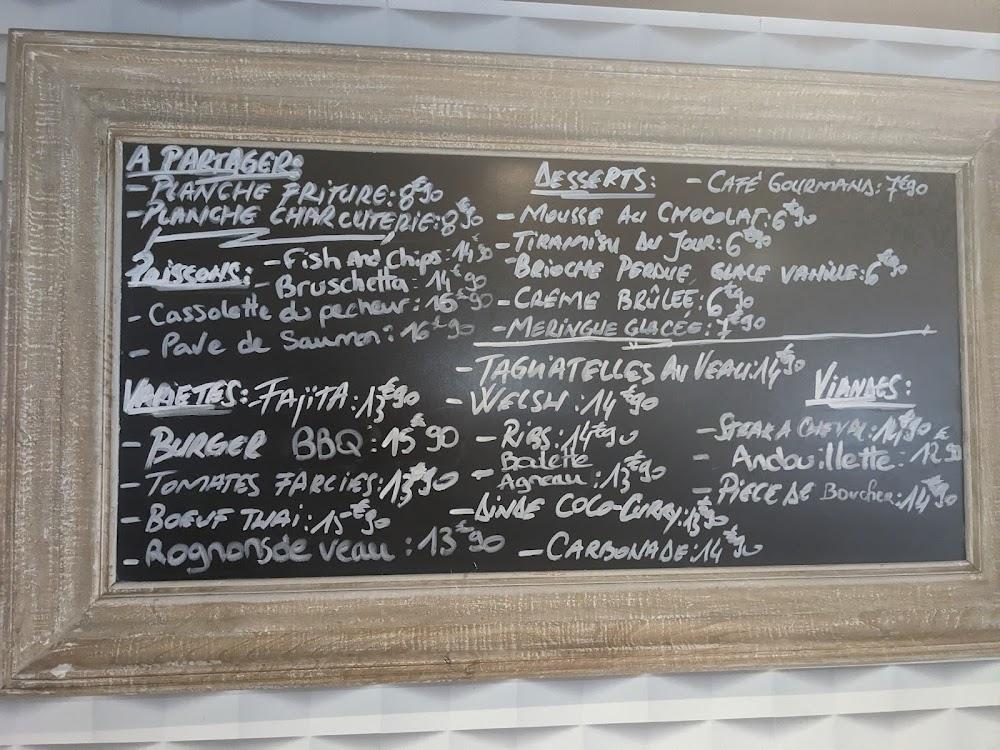 A PARTAGER:
- PLANCHE FRITURE: 8€90
- PLANCHE CHARCUTERIE: 8€90
POISSONS: - Fish And Chips: 14€90
- Bruschetta: 14€90
- Cassolette du pecheur: 16€90
- Pave de Saumon: 16€90
DESSERTS: - CAFÉ GOURMAND: 7€90
- MOUSSE AU CHOCOLAT: 6€90
- TIRAMISU DU JOUR: 6€90
- BRIOCHE PERDUE, GLACE VANILLE: 6€90
- CRÈME BRÛLÉE: 6€90
- MERINGUE GLACÉE: 7€90
VARIETES: FAJITA: 13€90
- BURGER BBQ: 15€90
- TOMATES FARCIES: 13€90
- BOEUF THAI: 15€90
- Rognons de veau: 13€90
- TAGLIATELLES AU VEAU: 14€90
- WELSH: 14€90
- RIBS: 14€90
- Balette
Agneau: 13€90
- DINDE COCO-CURRY: 13€90
- CARBONADE: 14€90
VIANDES:
- STEAK A CHEVAL: 14€90
- Andouillette: 12€90
- PIECE DE Boucher: 14€90